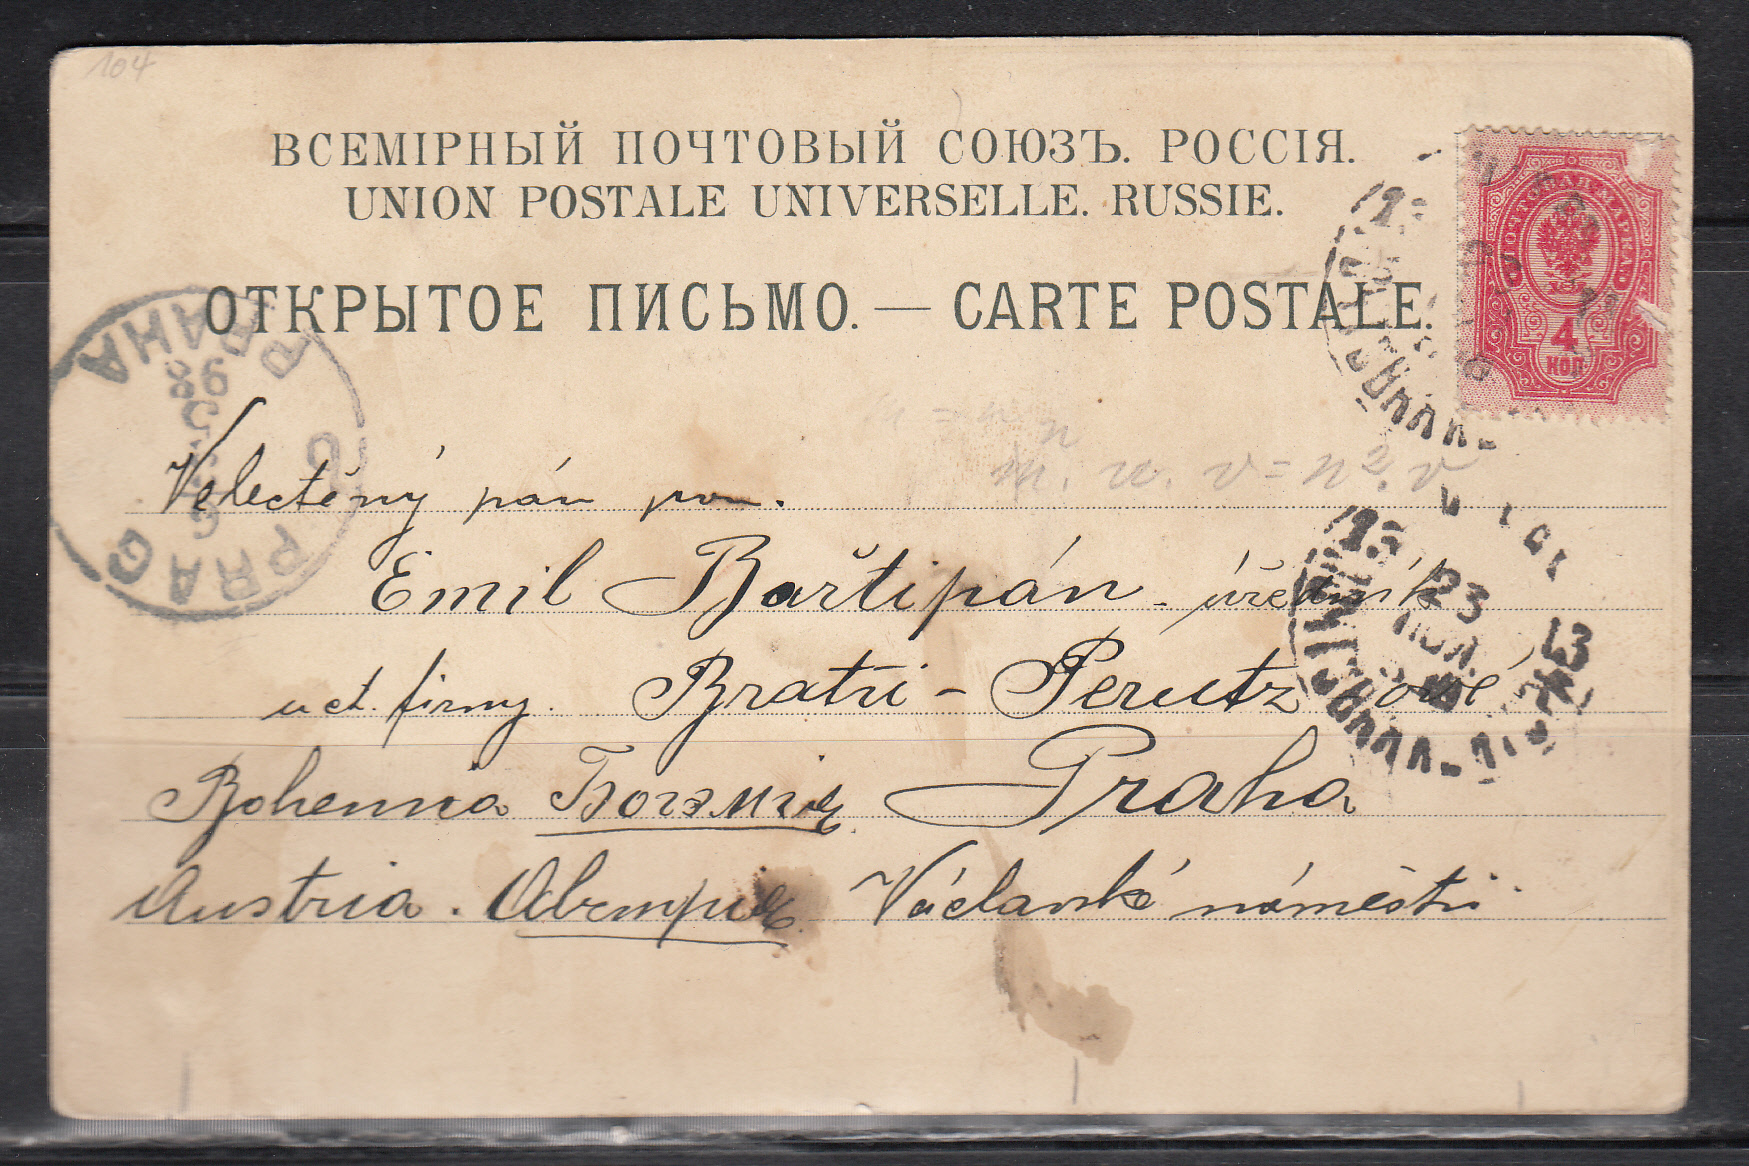 104
ВСЕМІРНЫЙ ПОЧТОВЫЙ СОЮЗЪ. РОССІЯ.
UNION POSTALE UNIVERSELLE. RUSSIE.
ОТКРЫТОЕ ПИСЬМО. — CARTE POSTALE.
ПОЧТОВАЯ МАРКА
4
КОП
PRAHA
PRAG
m. u. v = n². v
Velectěný pán pan.
Emil Baštipán - úředník
uct. firmy. Bratří - Perutzové
Bohemia Богэмія Praha
Austria. Австрія. Václavské náměstí
23
ІЮЛ.